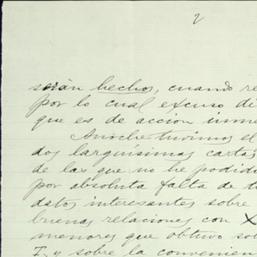 2
serán hechos, cuando re
por lo cual excuso di
que es de acción inme
Anoche tuvimos el
dos larguísimas cartas
de las que no he podido
por absoluta falta de t
datos interesantes sobre
buenas relaciones con X
menores que obtuvo sob
I, y sobre la convenien